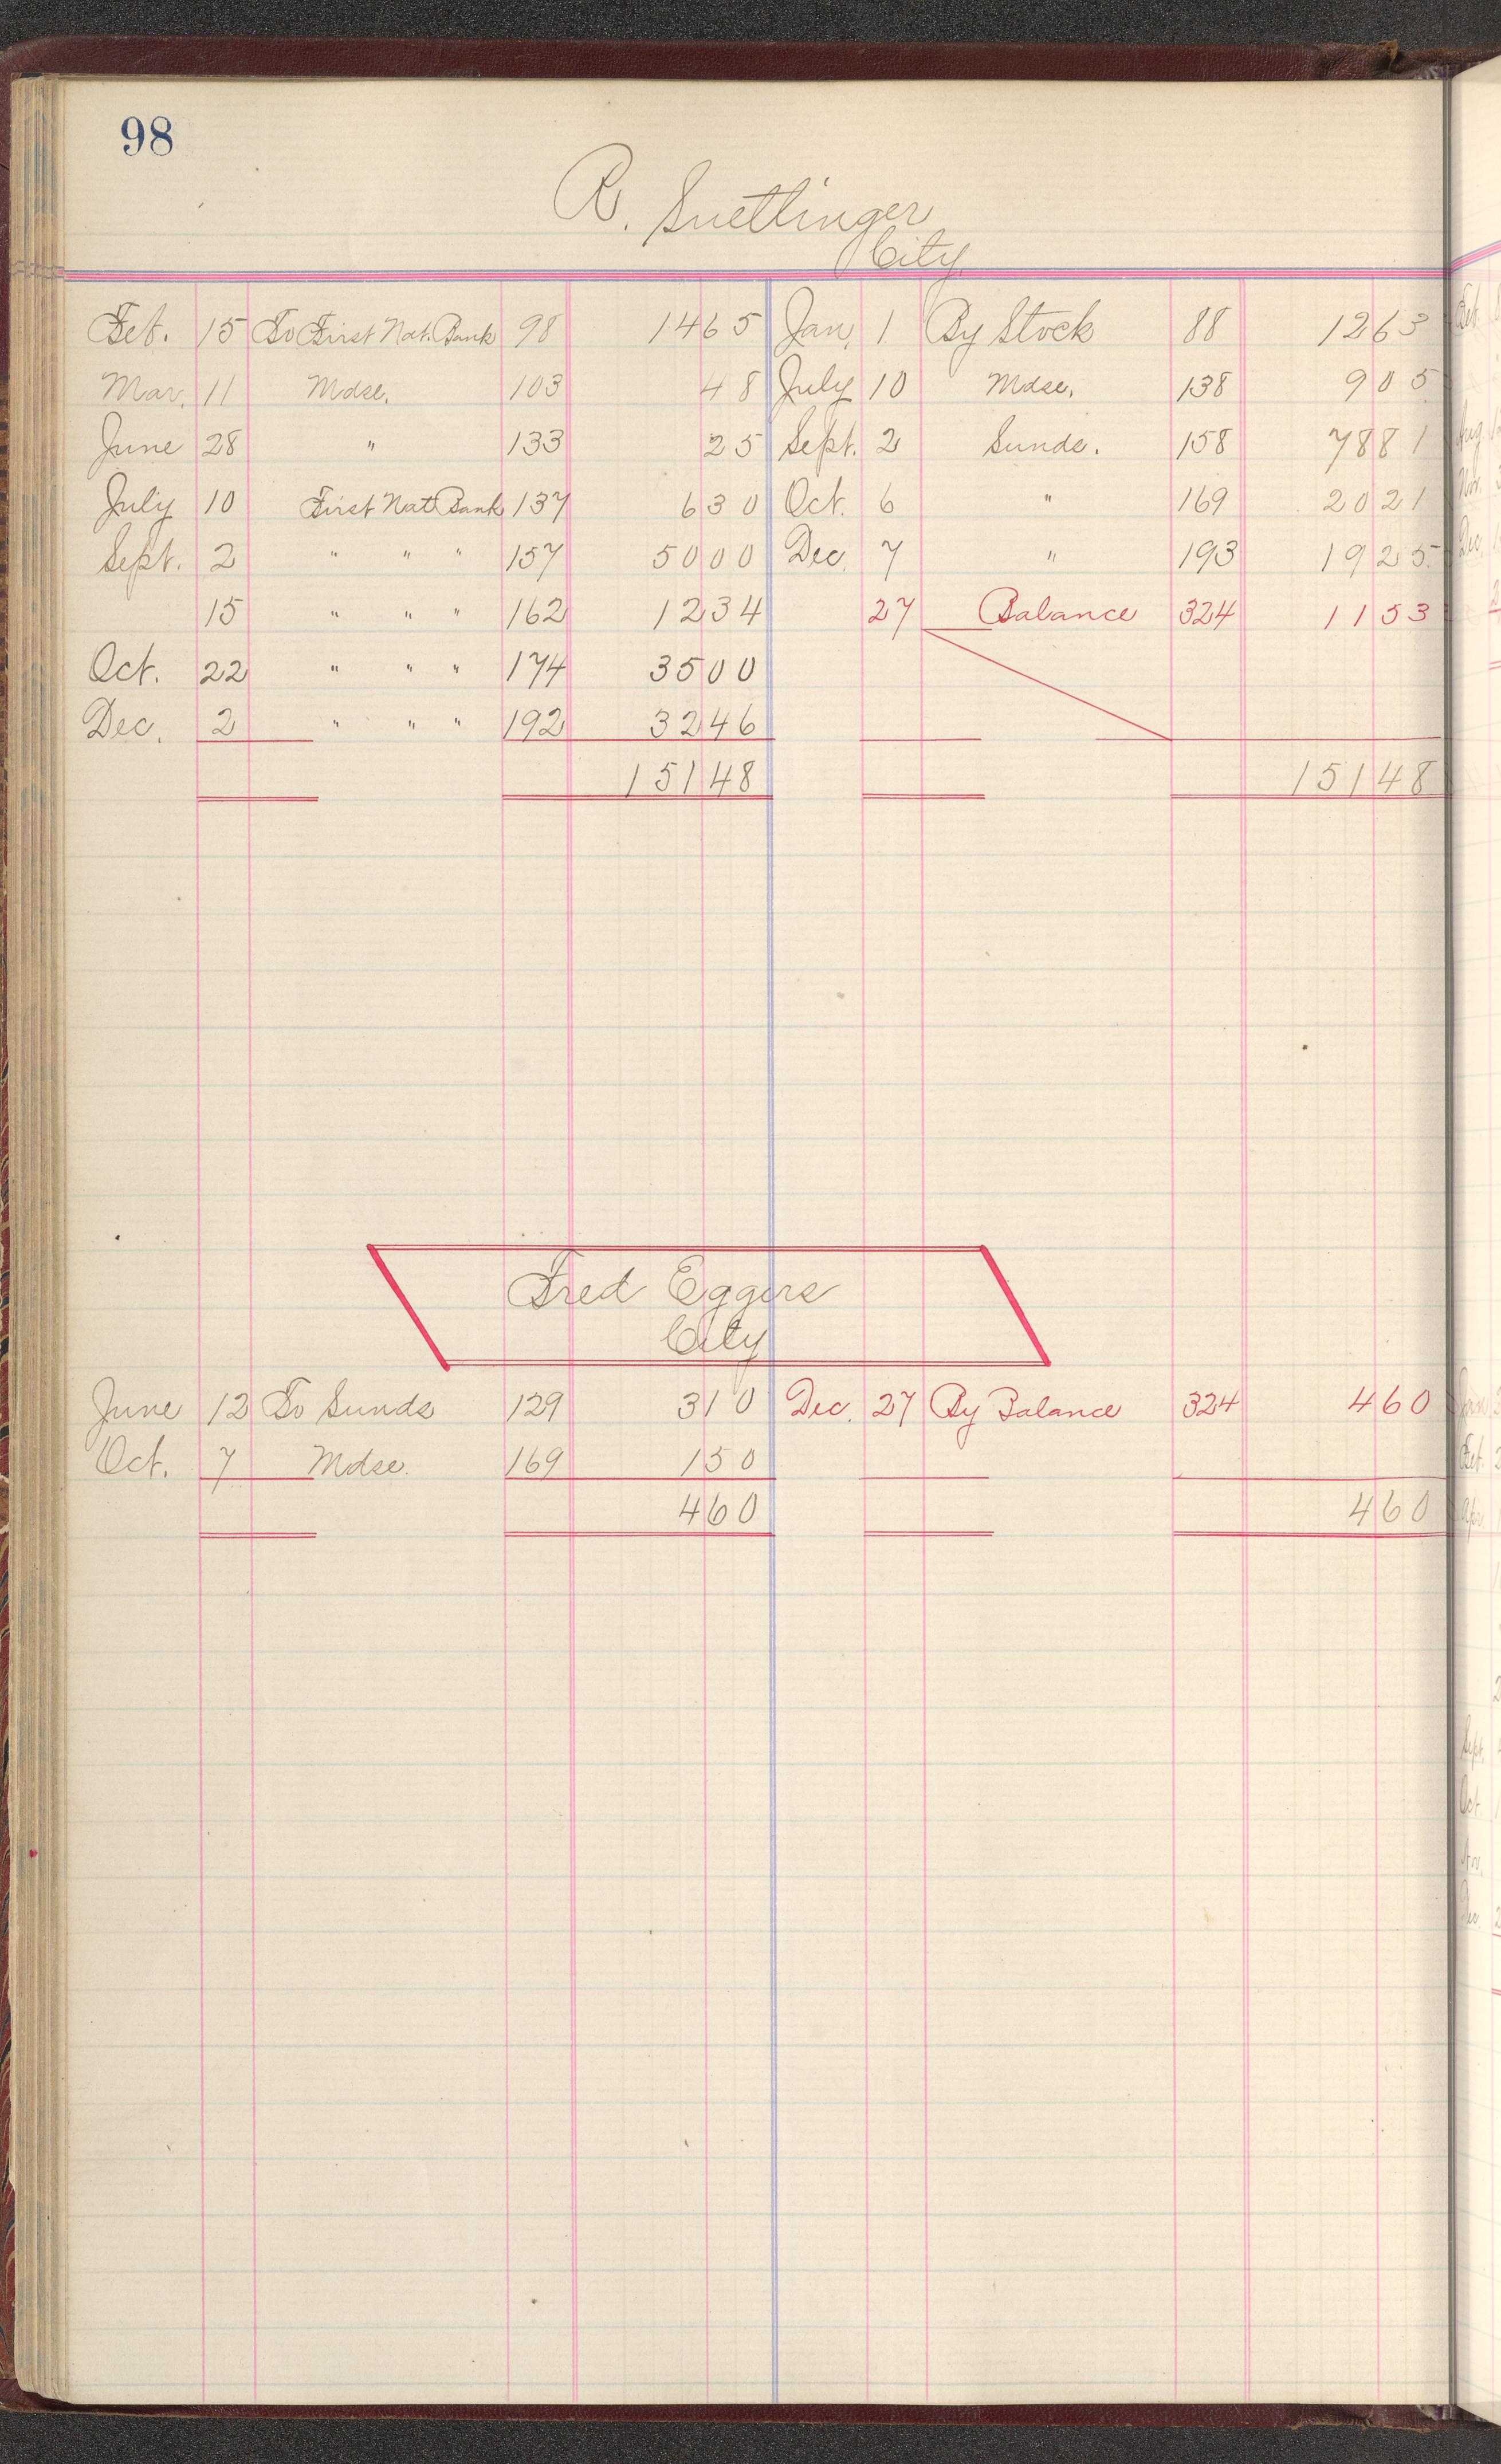 98
R. Suetlinger
City
Feb. 15 To First Nat. Bank 98 1465 Jan. 1 By Stock 88 1263
Mar. 11 Mdse. 103 48 July 10 Mdse. 138 905
June 28 " 133 25 Sept. 2 Sunds. 158 7881
July 10 First Nat Bank 137 630 Oct. 6 " 169 2021
Sept. 2 " " " 157 5000 Dec. 7 " 193 1925
15 " " " 162 1234 27 Balance 324 1153
Oct. 22 " " " 174 3500
Dec. 2 " " " 192 3246
15148 15148
Fred Eggers
City
June 12 To Sunds 129 310 Dec. 27 By Balance 324 460
Oct. 7 Mdse. 169 150
460 460